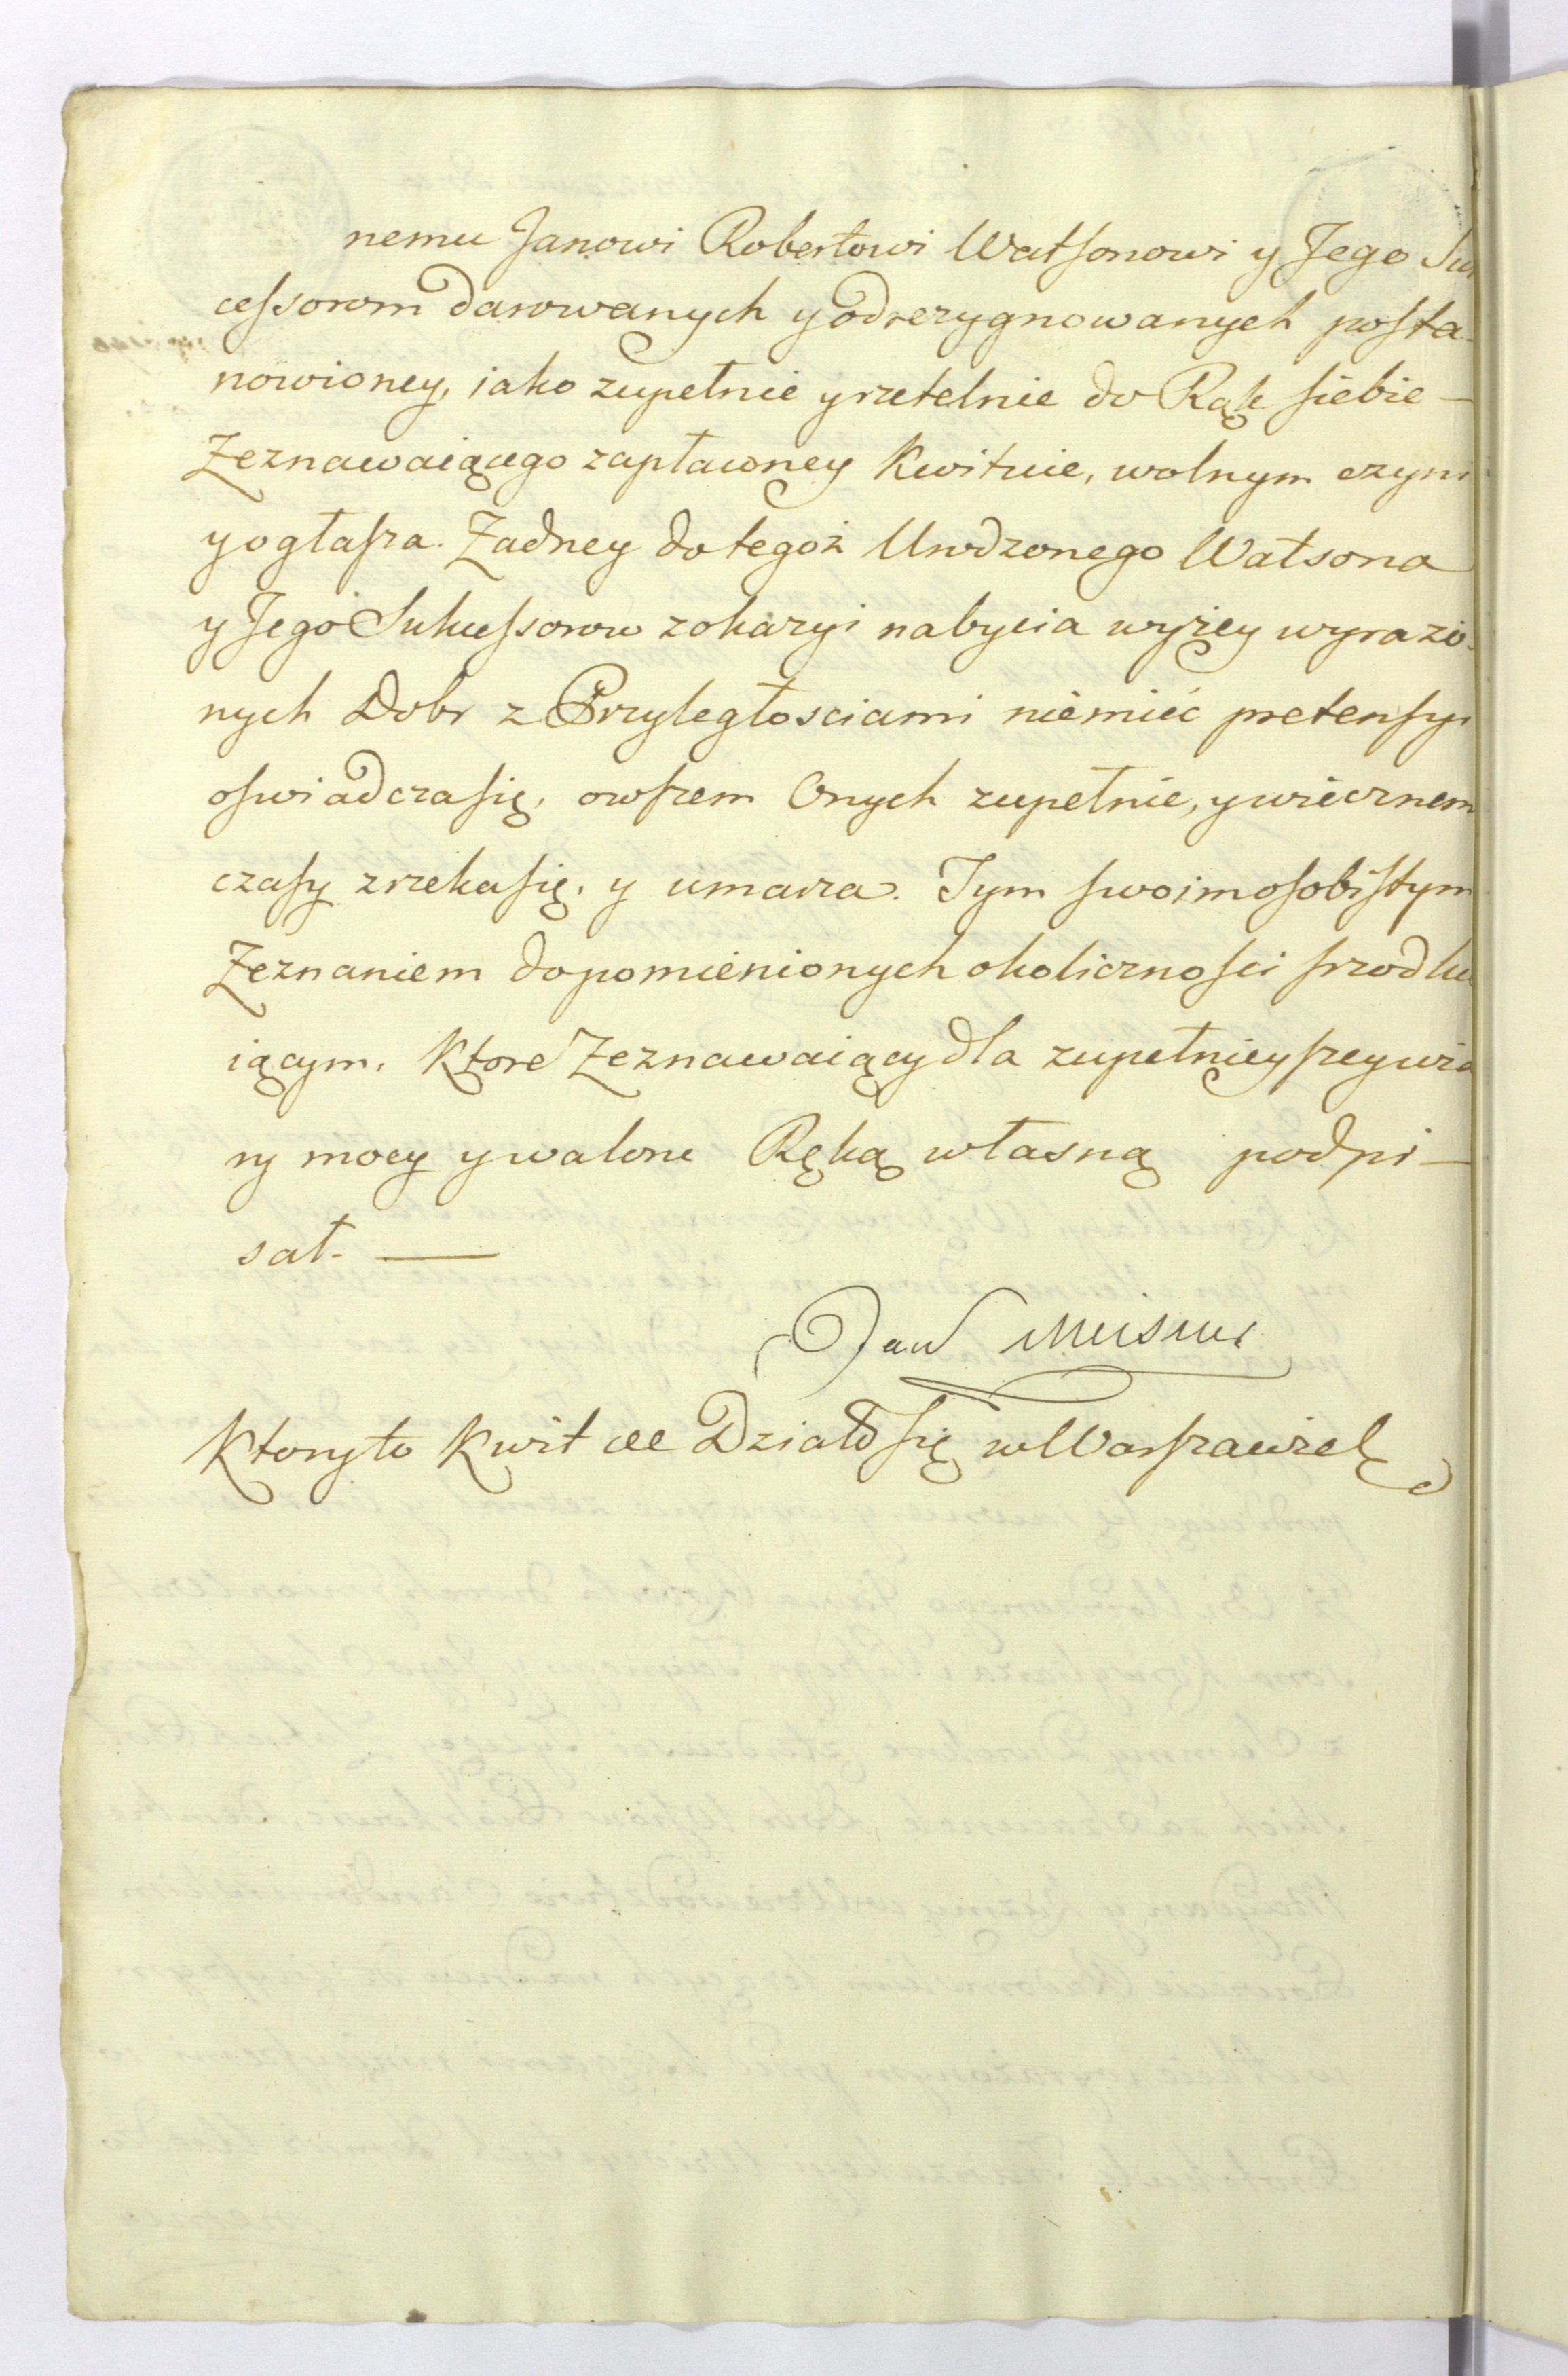 nemu Janowi Robertowi Watsonowi y Jego Suk
cessorom darowanych y odrezygnowanych posta-
nowioney, iako zupełnie y rzetelnie do Rąk siebie —
Zeznawaiącego zapłaconey kwituie, wolnym czyni
y ogłasza. Żadney do tegoż Urodzonego Watsona
y Jego Sukcessorow z okazyi nabycia wyżey wyrażo-
nych Dobr z Przyległosciami niemieć pretensyi
oswiadcza się, owszem Onych zupełnie, y wiecznemi
czasy zrzeka się, y umarza. Tym swoim osobistym
Zeznaniem do pomienionych okolicznosci srzodku
iącym, Ktore Zeznawaiący dla zupełnieyszey wia
ry mocy y waloru Ręką własną podpi—
sał. —
Jan
Ktory to Kwit etc Działo się w Warszawie